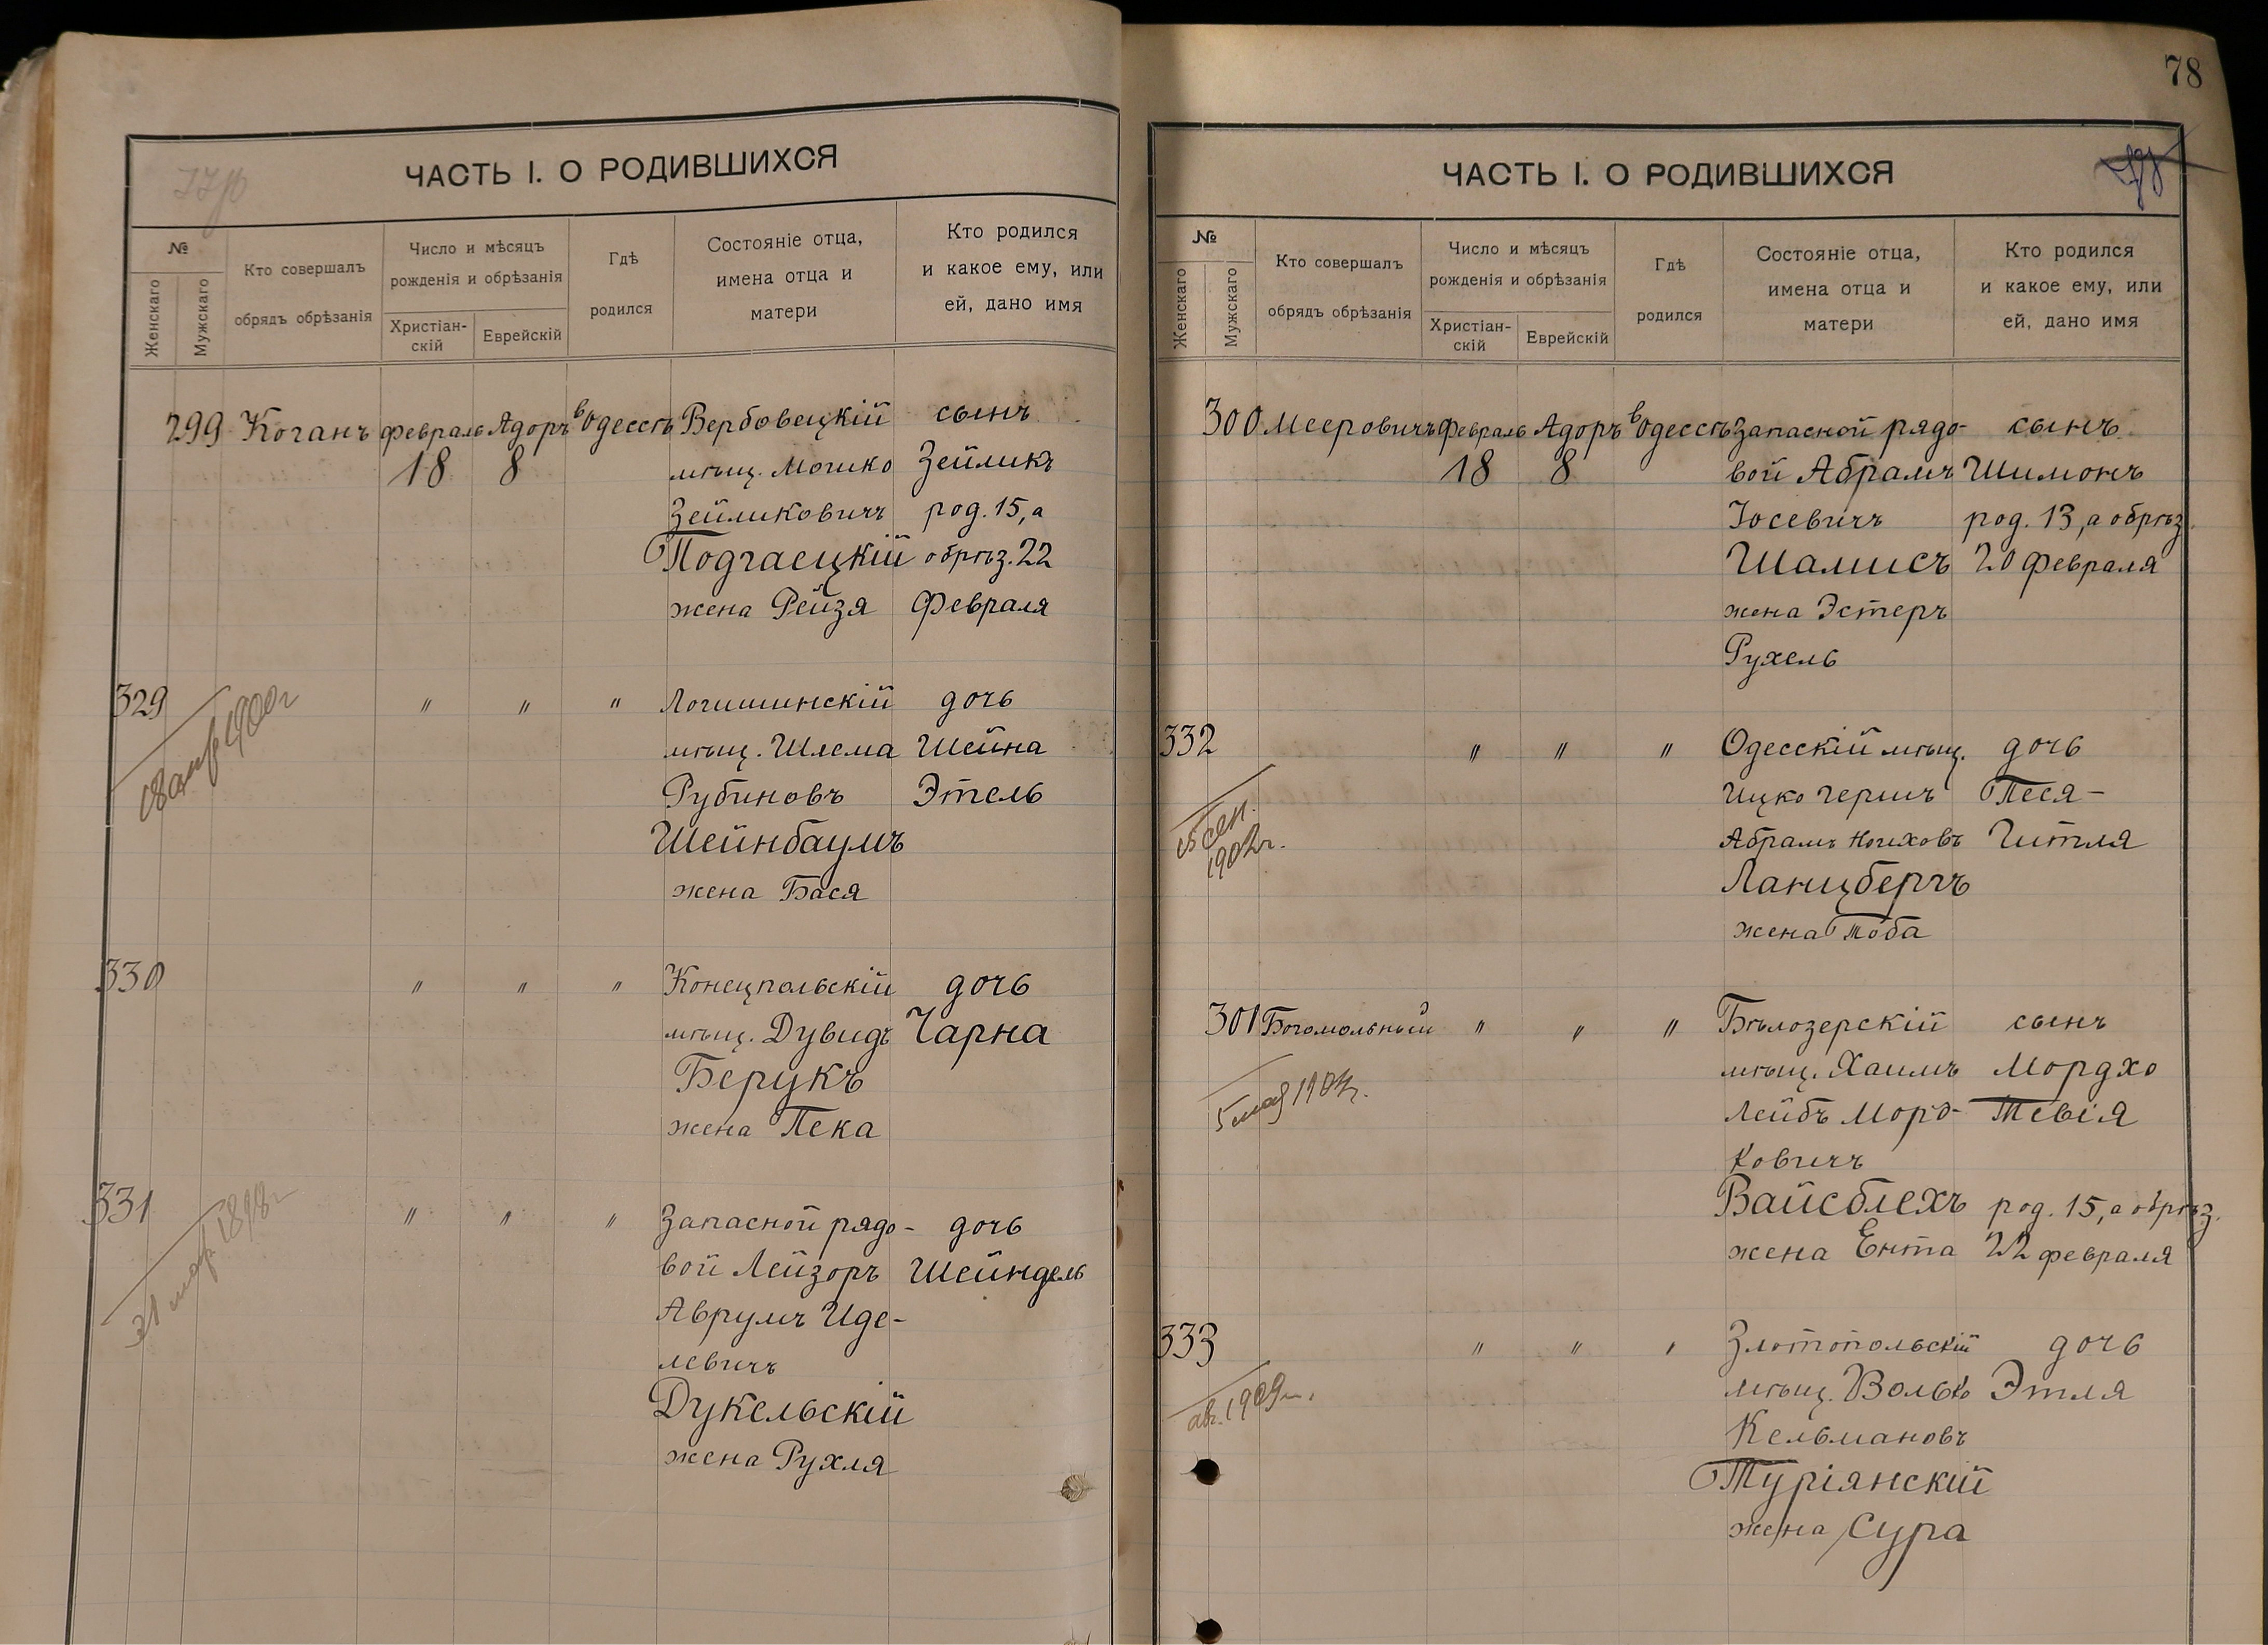 ЧАСТЬ I. О РОДИВШИХСЯ
№
Женскаго
Мужскаго
Кто совершалъ
обрядъ обрѣзанія
Число и мѣсяцъ
рожденія и обрѣзанія
Христіан-
скій
Еврейскій
Гдѣ
родился
Состояніе отца,
имена отца и
матери
Кто родился
и какое ему, или
ей, дано имя
299 Коганъ февраль Адоръ в Одессѣ Вербовецкій сынъ
18 8 мѣщ. Мошко Зейликъ
Зейликовичъ род. 15, а
Подгаецкій обрѣз. 22
жена Рейзя февраля
329 " " " Логишинскій дочь
мѣщ. Шлема Шейна
Рубиновъ Этель
Шейнбаумъ
жена Бася
1900г
330 " " " Конецпольскій дочь
мѣщ. Дувидъ Чарна
Берукъ
жена Пека
331 " " " Запасной рядо- дочь
вой Лейзоръ Шейндель
Аврумъ Иде-
левичъ
Дукельскій
жена Рухля
31 мар.
78
ЧАСТЬ I. О РОДИВШИХСЯ
№
Женскаго
Мужскаго
Кто совершалъ
обрядъ обрѣзанія
Число и мѣсяцъ
рожденія и обрѣзанія
Христіан-
скій
Еврейскій
Гдѣ
родился
Состояніе отца,
имена отца и
матери
Кто родился
и какое ему, или
ей, дано имя
300 Мееровичъ февраль Адоръ в Одессѣ Запасной рядо- сынъ
18 8 вой Абрамъ Шимонъ
Іосевичъ род. 13, а обрѣз.
Шамисъ 20 февраля
жена Эстеръ
Рухель
332 " " " Одесскій мѣщ. дочь
Ицко Гершъ Песя-
Абрамъ Ноиховъ Гитля
Ланцбергъ
жена Тоба
15 сен.
1902г.
301 Богомольный " " " Бѣлозерскій сынъ
мѣщ. Хаимъ Мордхо
Лейбъ Морд- Тевія
ковичъ
Вайсблехъ род. 15, а обрѣз.
жена Ента 22 февраля
5 мая 1904г.
333 " " " Златопольскій дочь
мѣщ. Волько Этля
Кельмановъ
Туріянскій
жена Сура
ав. 1909г.